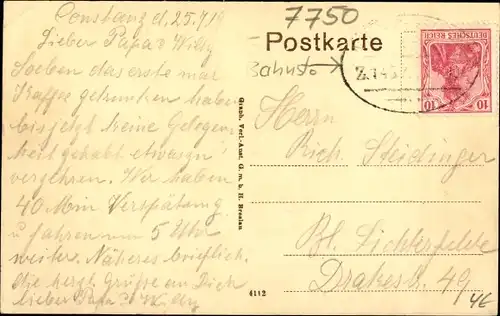 Constanz d. 25.7.1
Lieber Papa & Willy
Soeben das erste mar
Kaffee getrunken haben
bis jetzt keine Gelegen
heit gehabt etwas zu
verzehren. Wir haben
40 Min Verspätung
u fahren um 5 Uhr
weiter. Näheres brieflich.
die herzl. Grüsse an Dich
lieber Papa &
7750
Postkarte
Bahnpo
DEUTSCHES REICH
10 10
Herrn
Rich. Steidinger
Bl. Lichterfelde
Drakestr. 49
4€
Graph. Verl.-Anst. G. m. b. H. Breslau
4112